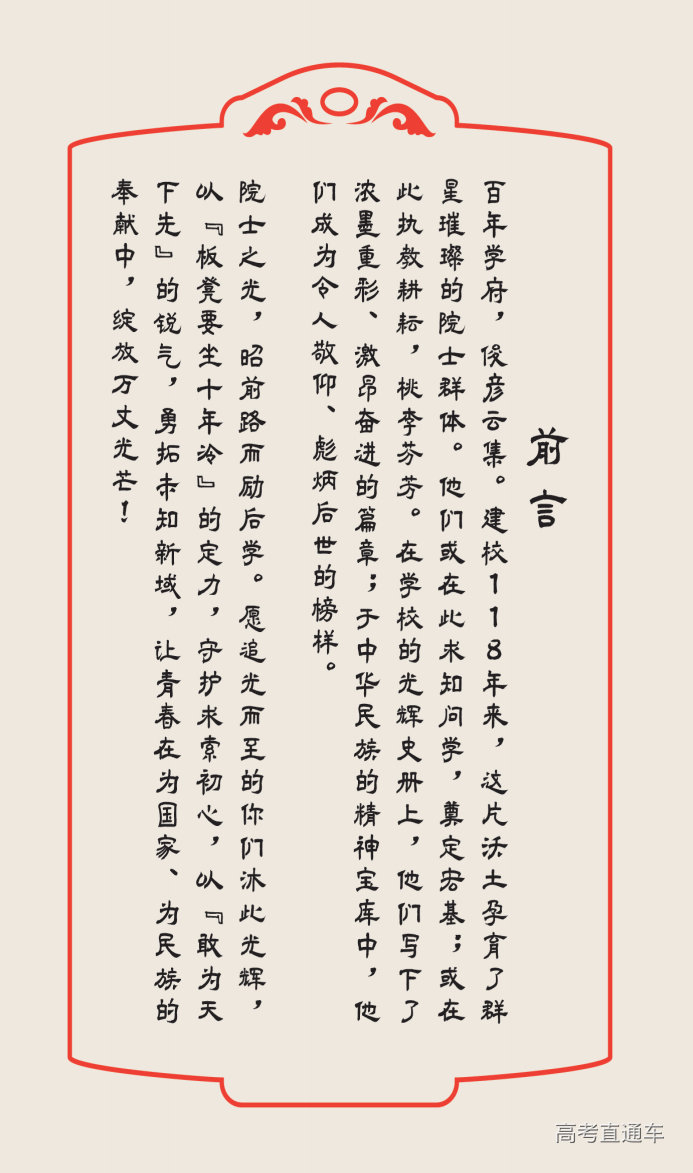 前言
百年学府，俊彦云集。建校118年来，这片沃土孕育了群
星璀璨的院士群体。他们或在此求知问学，奠定宏基；或在
此执教耕耘，桃李芬芳。在学校的光辉史册上，他们写下了
浓墨重彩、激昂奋进的篇章；于中华民族的精神宝库中，他
们成为令人敬仰、彪炳后世的榜样。
院士之光，昭前路而励后学。愿追光而至的你们沐此光辉，
以『板凳要坐十年冷』的定力，守护求索初心，以『敢为天
下先』的锐气，勇拓未知新域，让青春在为国家、为民族的
奉献中，绽放万丈光芒！
高考直通车